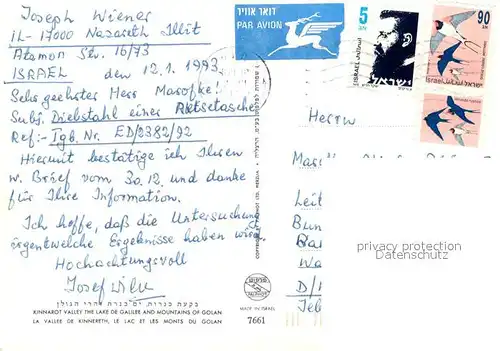 Joseph Wiener
IL-17000 Nazareth Illit
Atamon Str. 16/73
ISRAEL den 12.1.1993
Sehr geehrter Herr
Subj. Diebstahl einer Reisetasche
Ref:- Tgb. Nr. ED/2382/92
Hiermit bestätige ich Ihren
w. Brief vom 30.12 und danke
für Ihre Information.
Ich hoffe, daß die Untersuchung
irgentwelche Ergebnisse haben wird.
Hochachtungsvoll
Josef
בקעת כנרות ים כנרת והרי הגולן
KINNAROT VALLEY THE LAKE OF GALILEE AND MOUNTAINS OF GOLAN
LA VALLEE DE KINNERETH, LE LAC ET LES MONTS DU GOLAN
דואר אוויר
PAR AVION
5
ISRAEL
ישראל
90
ISRAEL ישראל
Herrn
Leit
Bun
Wa
D/
privacy protection
MADE IN ISRAEL
7661
PALPHOT